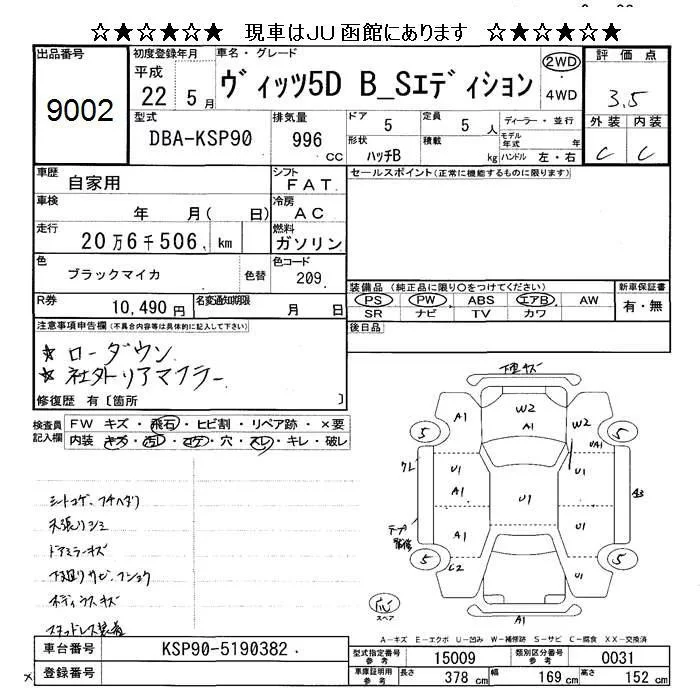 ☆★☆★☆★ 現車はJU函館にあります ☆★☆★☆★
出品番号 初度登録年月 車名・グレード 評価点
9002 平成 22年 5月 ヴィッツ5D B_Sエディション 2WD 4WD 3.5
型式 排気量 ドア 定員 ディーラー・並行 外装 内装
DBA-KSP90 996 CC 5 5人 モデル年式 年 C C
形状 積載
ハッチB kg ハンドル 左・右
車歴 自家用 シフト FAT セールスポイント(正常に機能するものに限ります)
車検 年 月( 日) 冷房 AC
走行 20万6千506 km 燃料 ガソリン
色 ブラックマイカ 色替 色コード 209
装備品(純正品に限り○をつけてください) 新車保証書
PS PW ABS エアB AW 有・無
SR ナビ TV カワ
R券 10,490円 名変通知期限 月 日
後日品
注意事項申告欄(不具合内容等は具体的に記入して下さい)
★ローダウン
★社外リアマフラー
修復歴 有〔箇所 〕
検査員記入欄 FW キズ・飛石・ヒビ割・リペア跡・×要
内装 キズ・汚レ・コゲ・穴・スレ・キレ・破レ
シートコゲ、フチヘタリ
天張リシミ
ドアミラーキズ
下廻リサビ、フショク
ボディウスキズ
スタッドレス装着
下廻キズ
W2
A1
A1
5
5
UA1
クレ
U1
A1
U1
U1
A3
テープ補修
A1
U1
5
5
C2
U1
応
スペア
A1
A-キズ E-エクボ U-凹み W-補修跡 S-サビ C-腐食 XX-交換済
車台番号 KSP90-5190382
登録番号
型式指定番号 参考 15009 類別区分番号 参考 0031
車庫証明用 参考 長さ 378 cm 幅 169 cm 高さ 152 cm